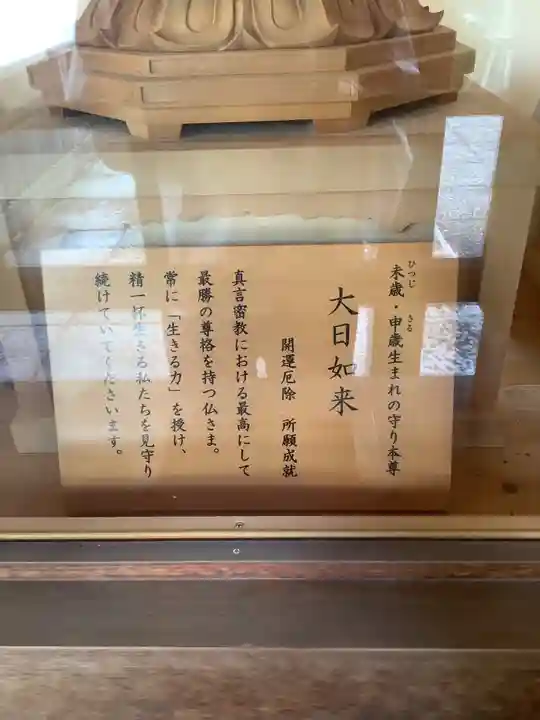 未歳・申歳生まれの守り本尊
ひつじ
さる
大日如来
開運厄除 所願成就
真言密教における最高にして
最勝の尊格を持つ仏さま。
常に「生きる力」を授け、
精一杯生きる私たちを見守り
続けていてくださいます。